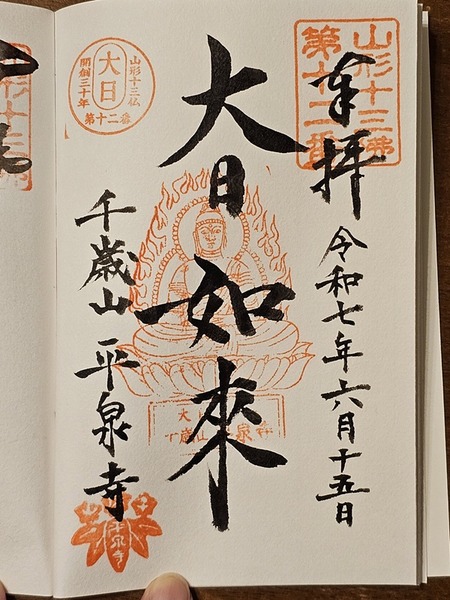 奉拝
令和七年六月十五日
山形十三佛
第十二番
大日如來
大日
山形十三仏
開創三十年
第十二番
千歳山 平泉寺
大日
千歳山平泉寺
平泉寺